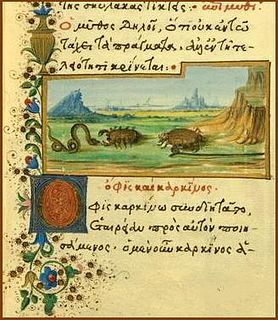 τῆς σκύλακας τίκτεις. ἐπιμύθι
ὁ μῦθος δηλοῖ, ὅτι οὐκ ἐν τῷ
τάχει τὰ πράγματα, ἀλλ' ἐν τῇ τε
λειότητι κρίνεται:
ὄφις καὶ καρκῖνος.
Ὄφις καρκίνῳ συνδιητᾶτο,
ἑταιρείαν πρὸς αὐτὸν ποιη
σάμενος. ὁ μὲν οὖν καρκῖνος ἁ